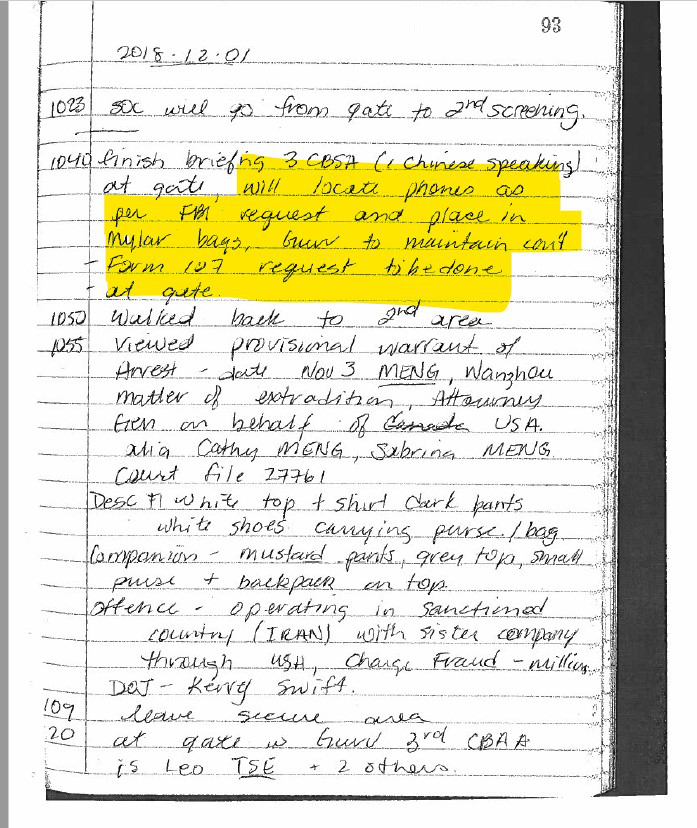 93
2018-12-01
1023 SOC will go from gate to 2nd screening.
1040 finish briefing 3 CBSA (1 Chinese speaking)
at gate, will locate phones as
per FBI request and place in
Mylar bags, to maintain cont
- Form 127 request to be done
- at gate.
1050 Walked back to 2nd area
1055 Viewed provisional warrant of
Arrest - date Nov 3 MENG, Wanzhou
matter of extradition, Attourney
Gen on behalf of Canada USA.
alia Cathy MENG, Sabrina MENG
Court file 27761
Desc F1 White top + shirt dark pants
white shoes carrying purse/bag
Companion - mustard pants, grey top, small
purse + backpack on top
Offence - operating in sanctioned
country (IRAN) with sister company
through USA, Charge Fraud - millions
DOJ - Kerry Swift.
109 leave secure area
20 at gate w 3rd CBAA
is Leo TSE + 2 others.